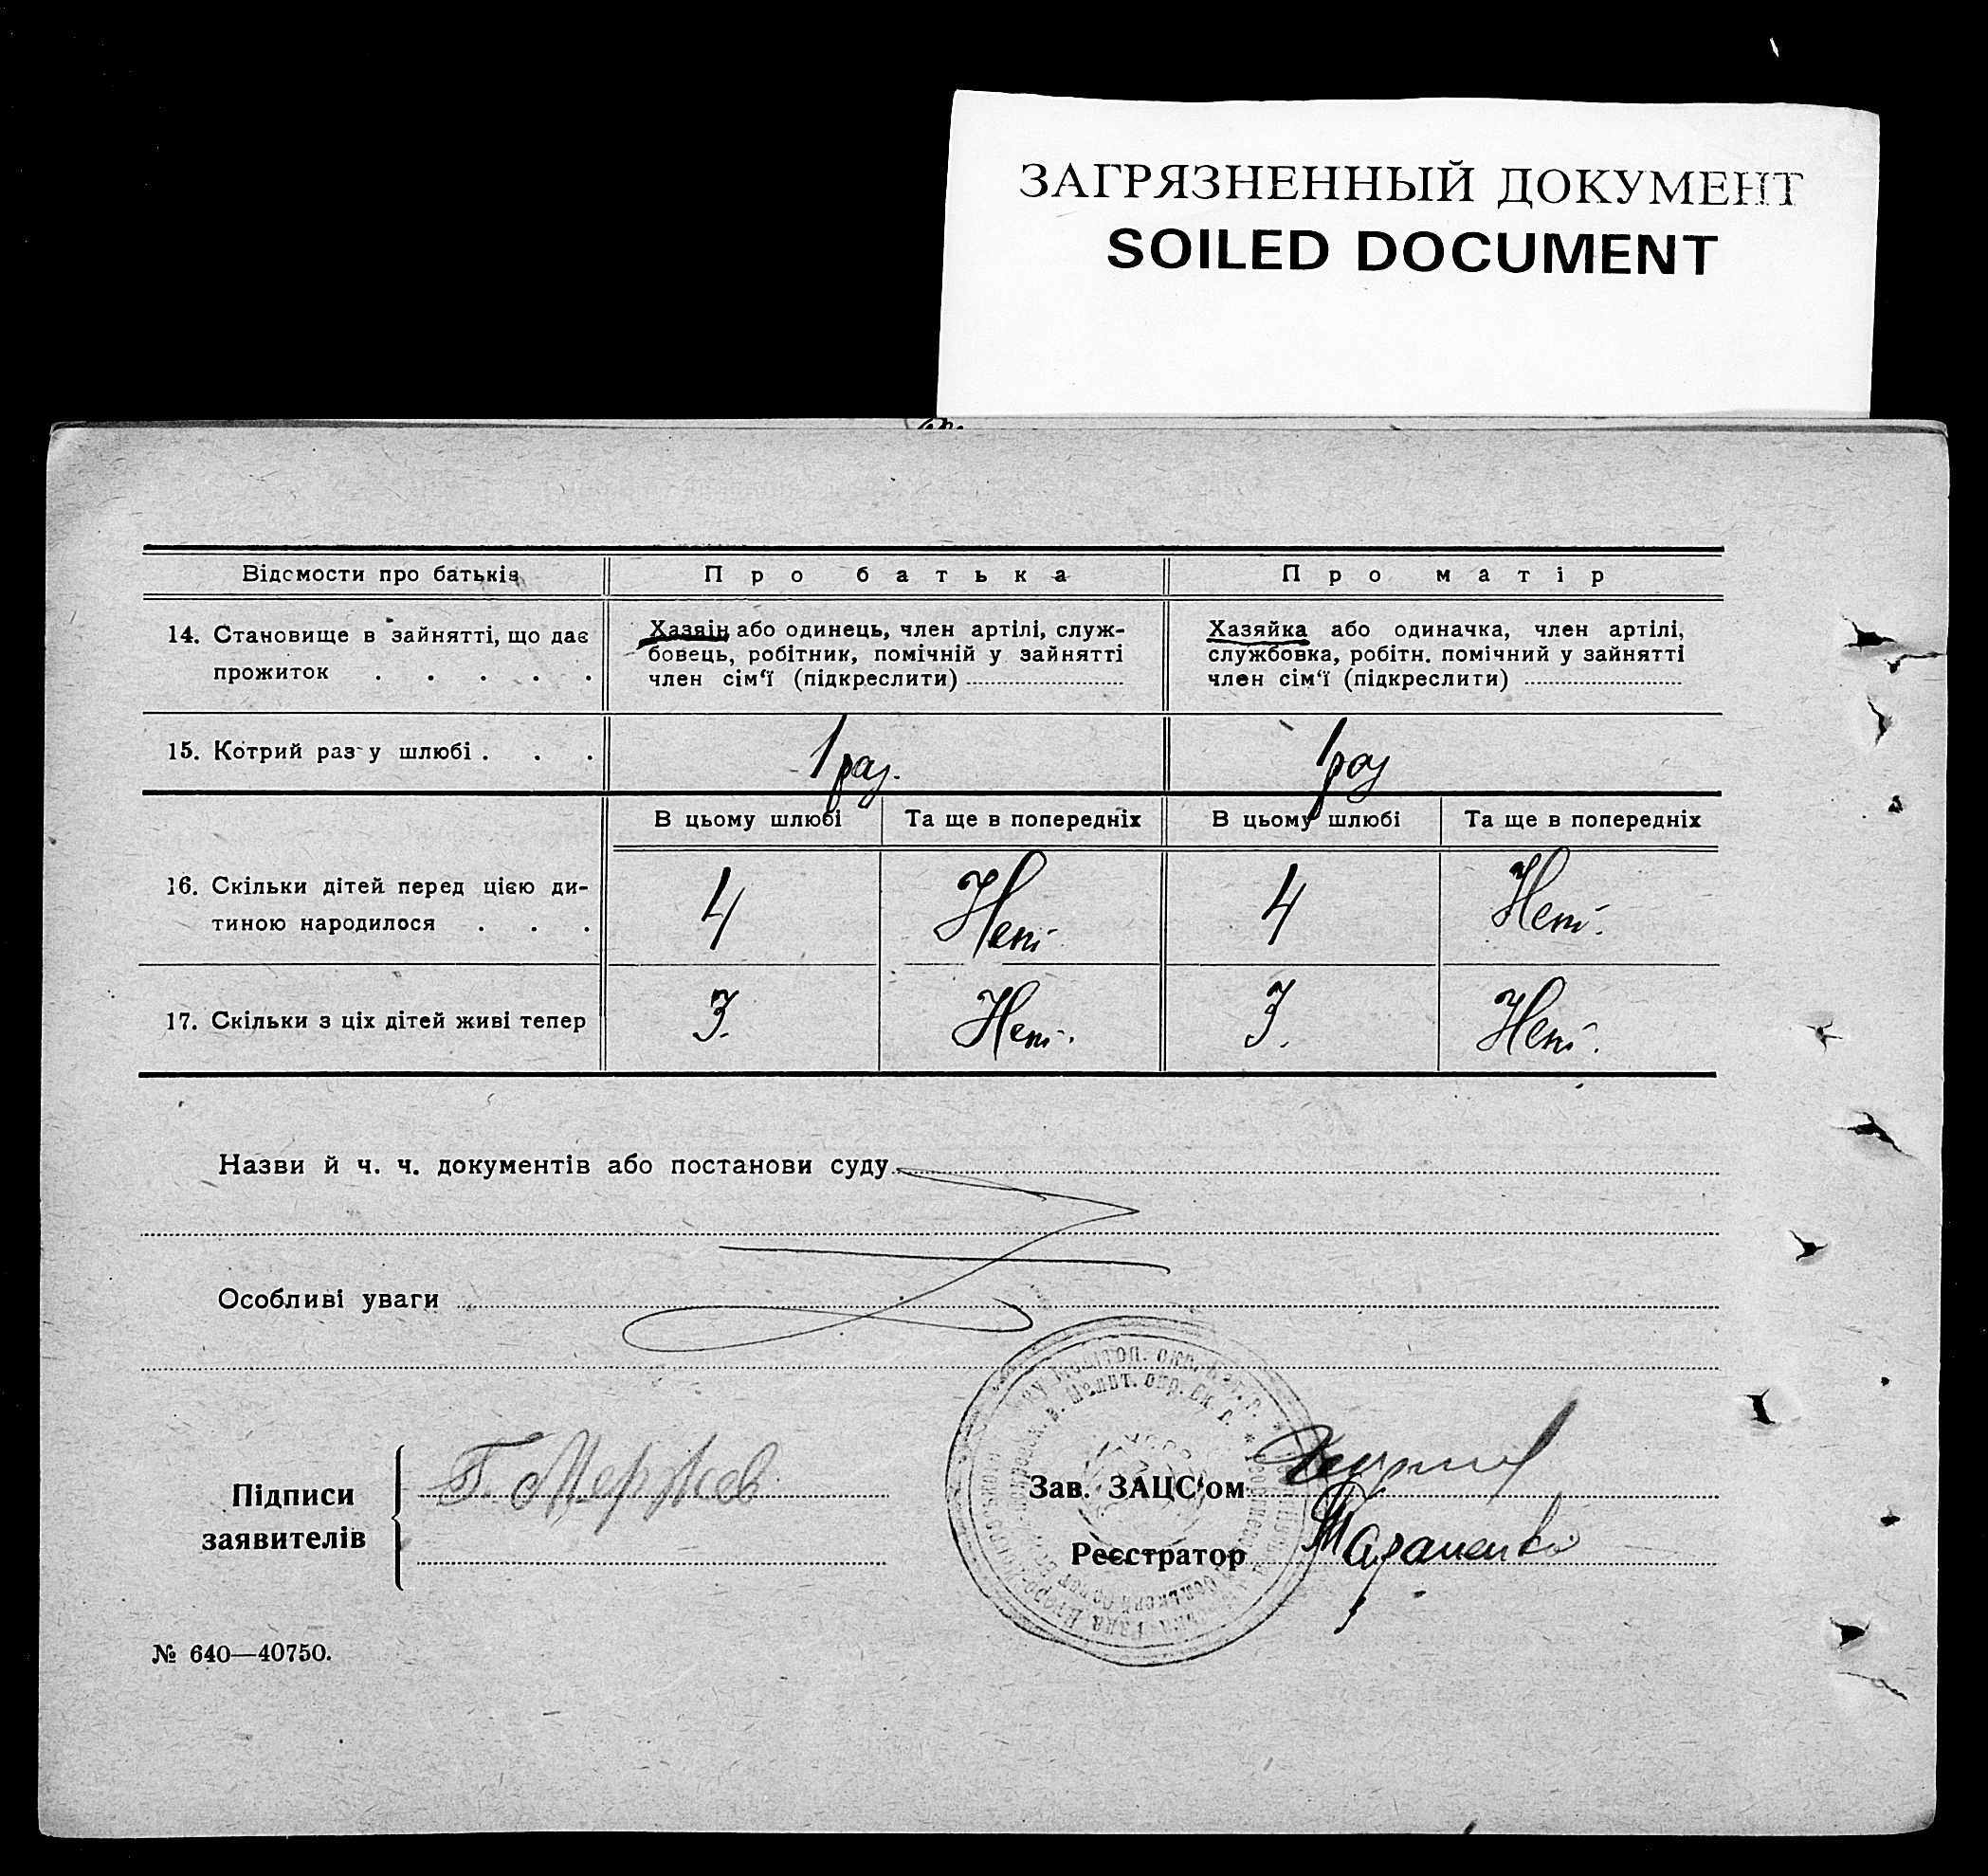 ЗАГРЯЗНЕННЫЙ ДОКУМЕНТ
SOILED DOCUMENT
Відомости про батьків
Про батька
Про матір
14. Становище в зайнятті, що дає
прожиток . . . . .
Хазяїн або одинець, член артілі, служ-
бовець, робітник, помічній у зайнятті
член сім‘ї (підкреслити)
Хазяйка або одиначка, член артілі,
службовка, робітн. помічний у зайнятті
член сім‘ї (підкреслити)
15. Котрий раз у шлюбі . . .
1 раз.
1 раз
В цьому шлюбі
Та ще в попередніх
В цьому шлюбі
Та ще в попередніх
16. Скільки дітей перед цією ди-
тиною народилося . . .
4
Нет
4
Нет.
17. Скільки з ціх дітей живі тепер
3.
Нет.
3.
Нет.
Назви й ч. ч. документів або постанови суду
Особливі уваги
Підписи
заявителів
Г. Мержев
Зав. ЗАЦС‘ом
Реєстратор
№ 640—40750.